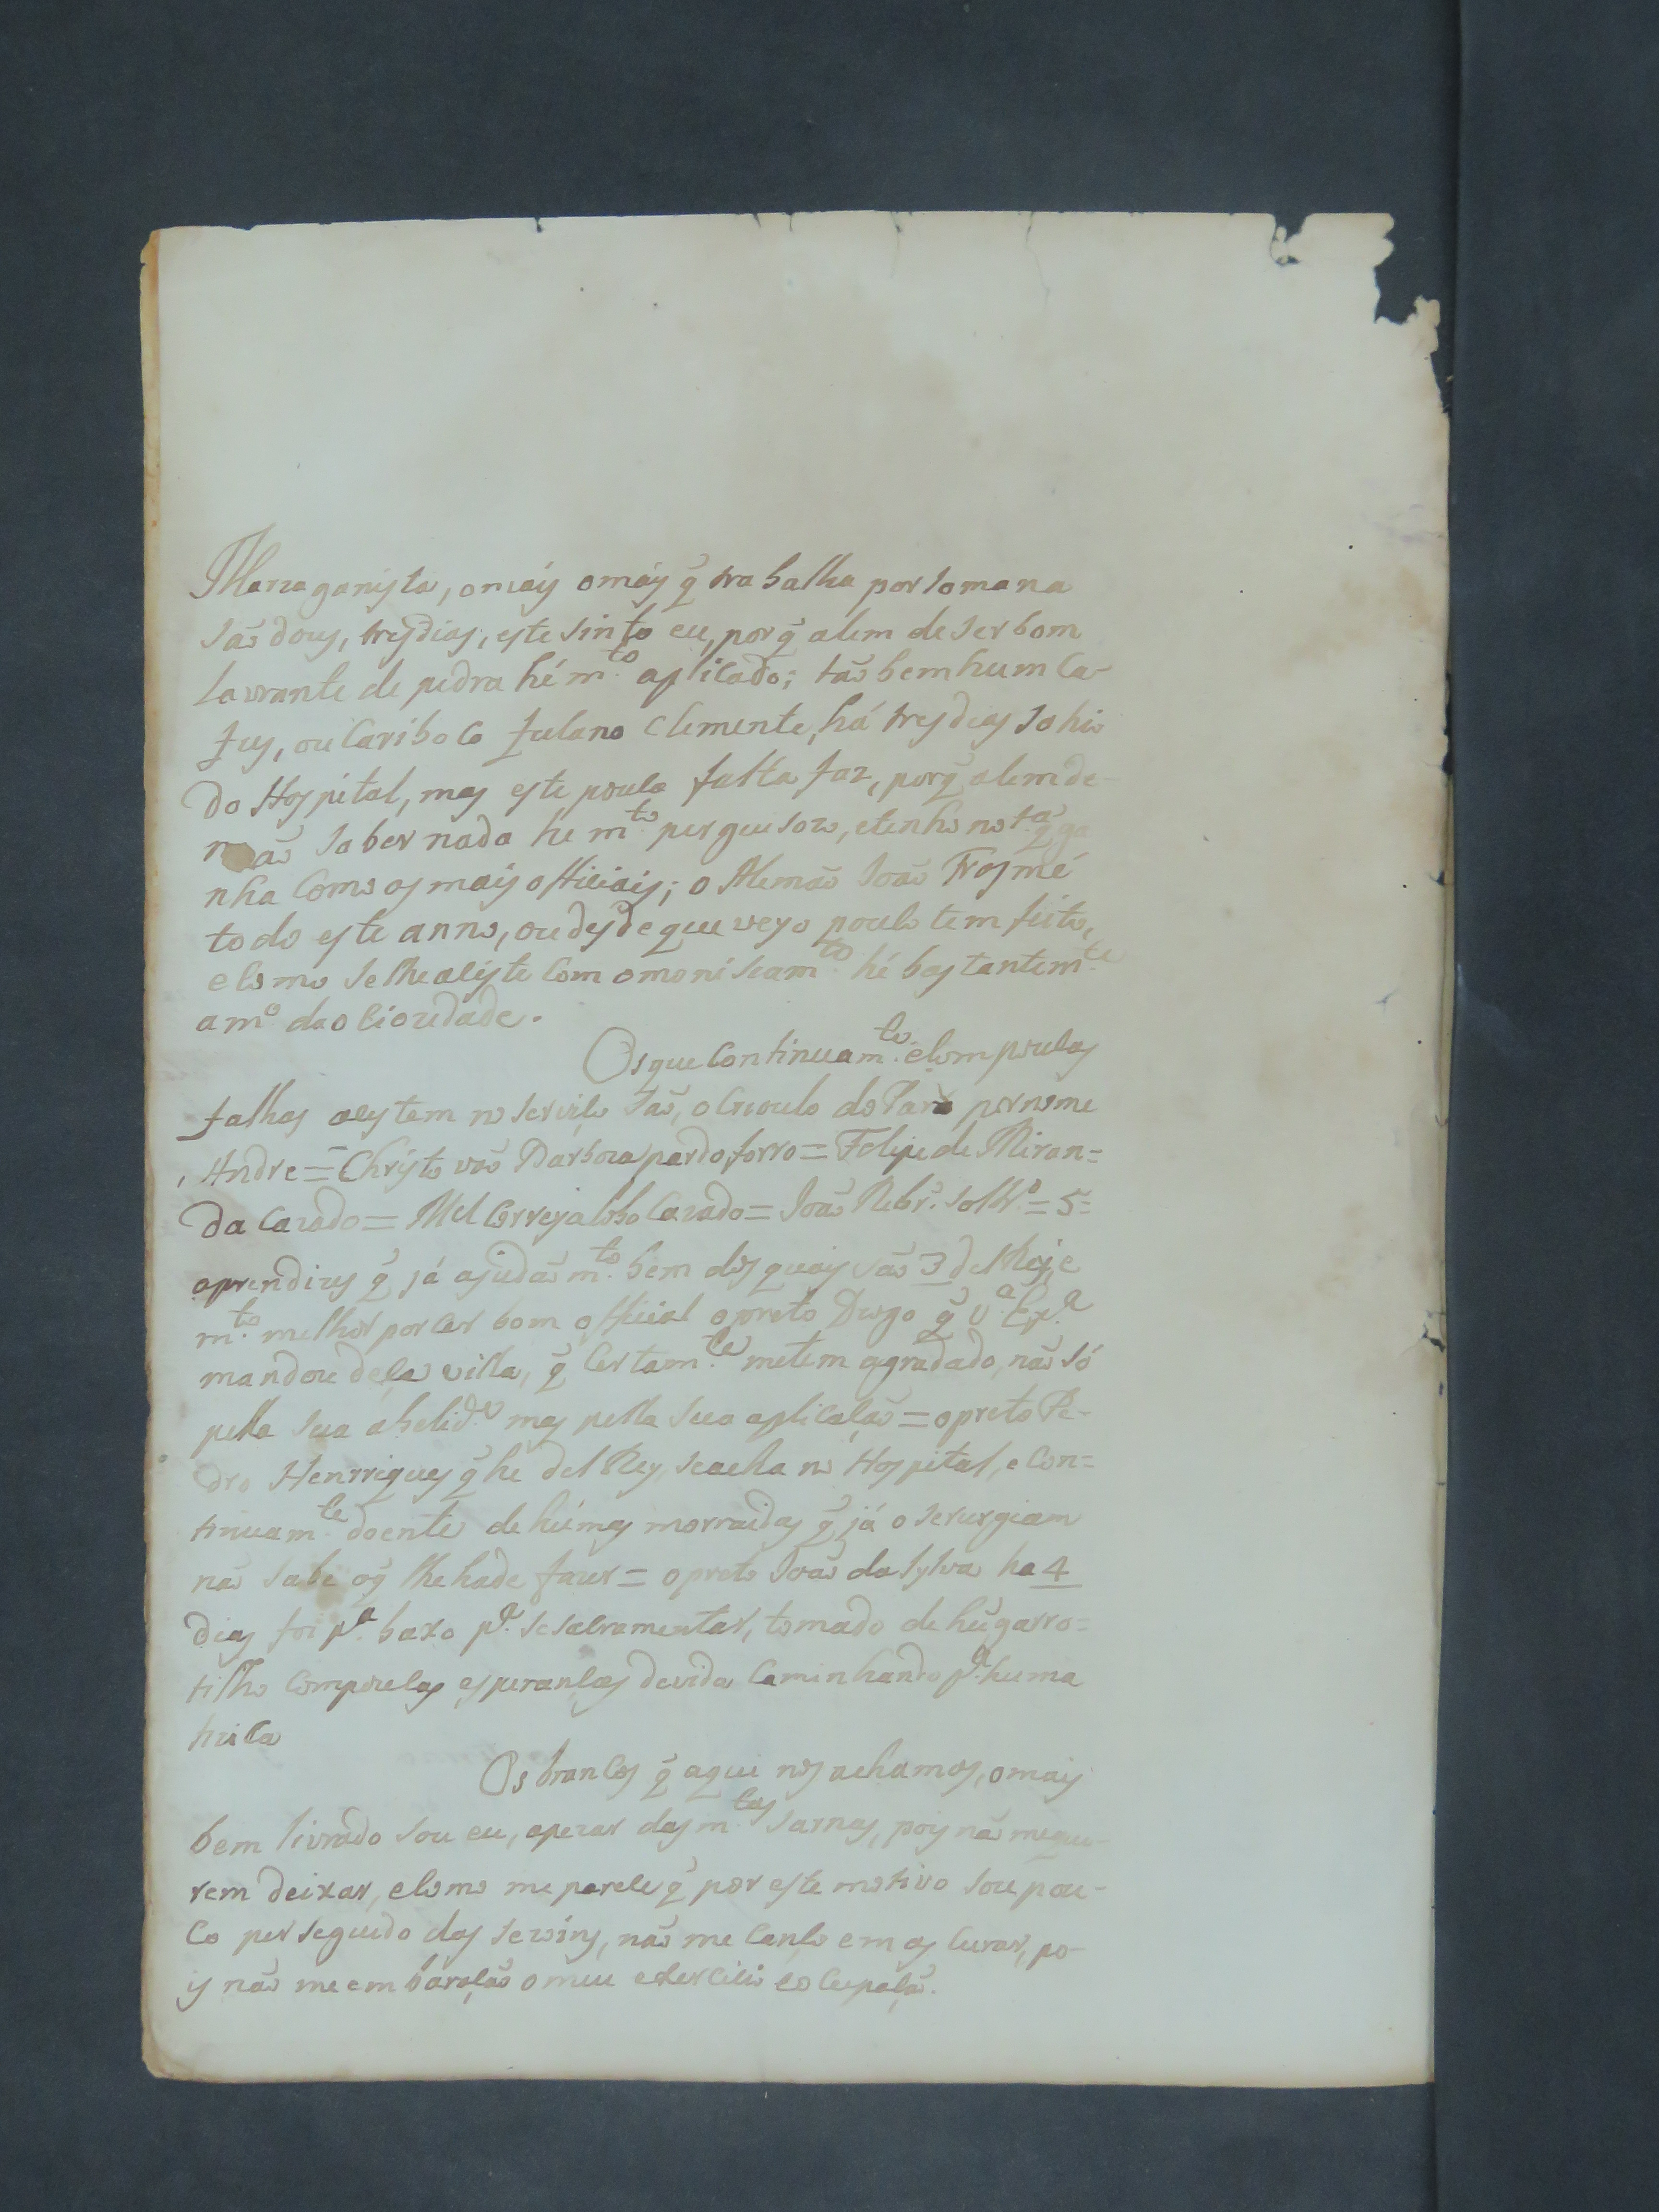 Mazaganista, o mais o mais q̃ trabalha por somana
saõ dous, tres dias, este sinto eu, porq̃ alem de ser bom
lavrante de pedra hé m.to aplicado; taõ bem hum Ca-
fus, ou Cariboco fulano Clemente, há tres dias sahio
do Hospital, mas este pouca falta faz, porq̃ alem de
naõ saber nada he m.to perguisozo, e tenho nota q̃ ga
nha como os mais officiais; o Alemaõ Joaõ
todo este anno, ou desde que veyo pouco tem feito,
e como se lhe asiste com o moniseam.to hé bastantem.te
am.o da ociozidade.
Os que continuam.te e com poucas
falhas asistem no serviço saõ, o Creoulo do Pará por nome
Andre = Christovaõ Barboza pardo forro = Felipe de Miran=
da Cazado = M.el Correya lobo Cazado = Joaõ Ribr.o soltr.o = 5 =
aprendizes q̃ já ajudaõ m.to bem dos quais saõ 3 del Rej, e
m.to melhor por ser bom official o preto Diogo q̃ V.a Ex.a
mandou desa villa, q̃ certam.te me tem agradado, naõ só
pella sua abelid.e mas pella sua aplicaçaõ = o preto Pe-
dro Henrriques q̃ he del Rey, se acha no Hospital, e con=
tinuam.te doente de húmas morraidas q̃ já o serurgiam
naõ sabe oq̃ lhe hade fazer = o preto Joaõ da Sylva ha 4
dias foi p.a baxo p.a se sacramentar, tomado de hũ garro=
tilho com poucas esperanças de vida caminhando p.a huma
tizica
Os brancos q̃ aqui nos achamos, o mais
bem livrado sou eu, apezar das m.tas sarnas, pois naõ me que-
rem deixar, e como me parece q̃ por este motivo sou pou-
co perseguido das sezoins, naõ me canço em as curar, po-
is naõ me embaraçaõ o meu exercicio e ocupaçaõ.